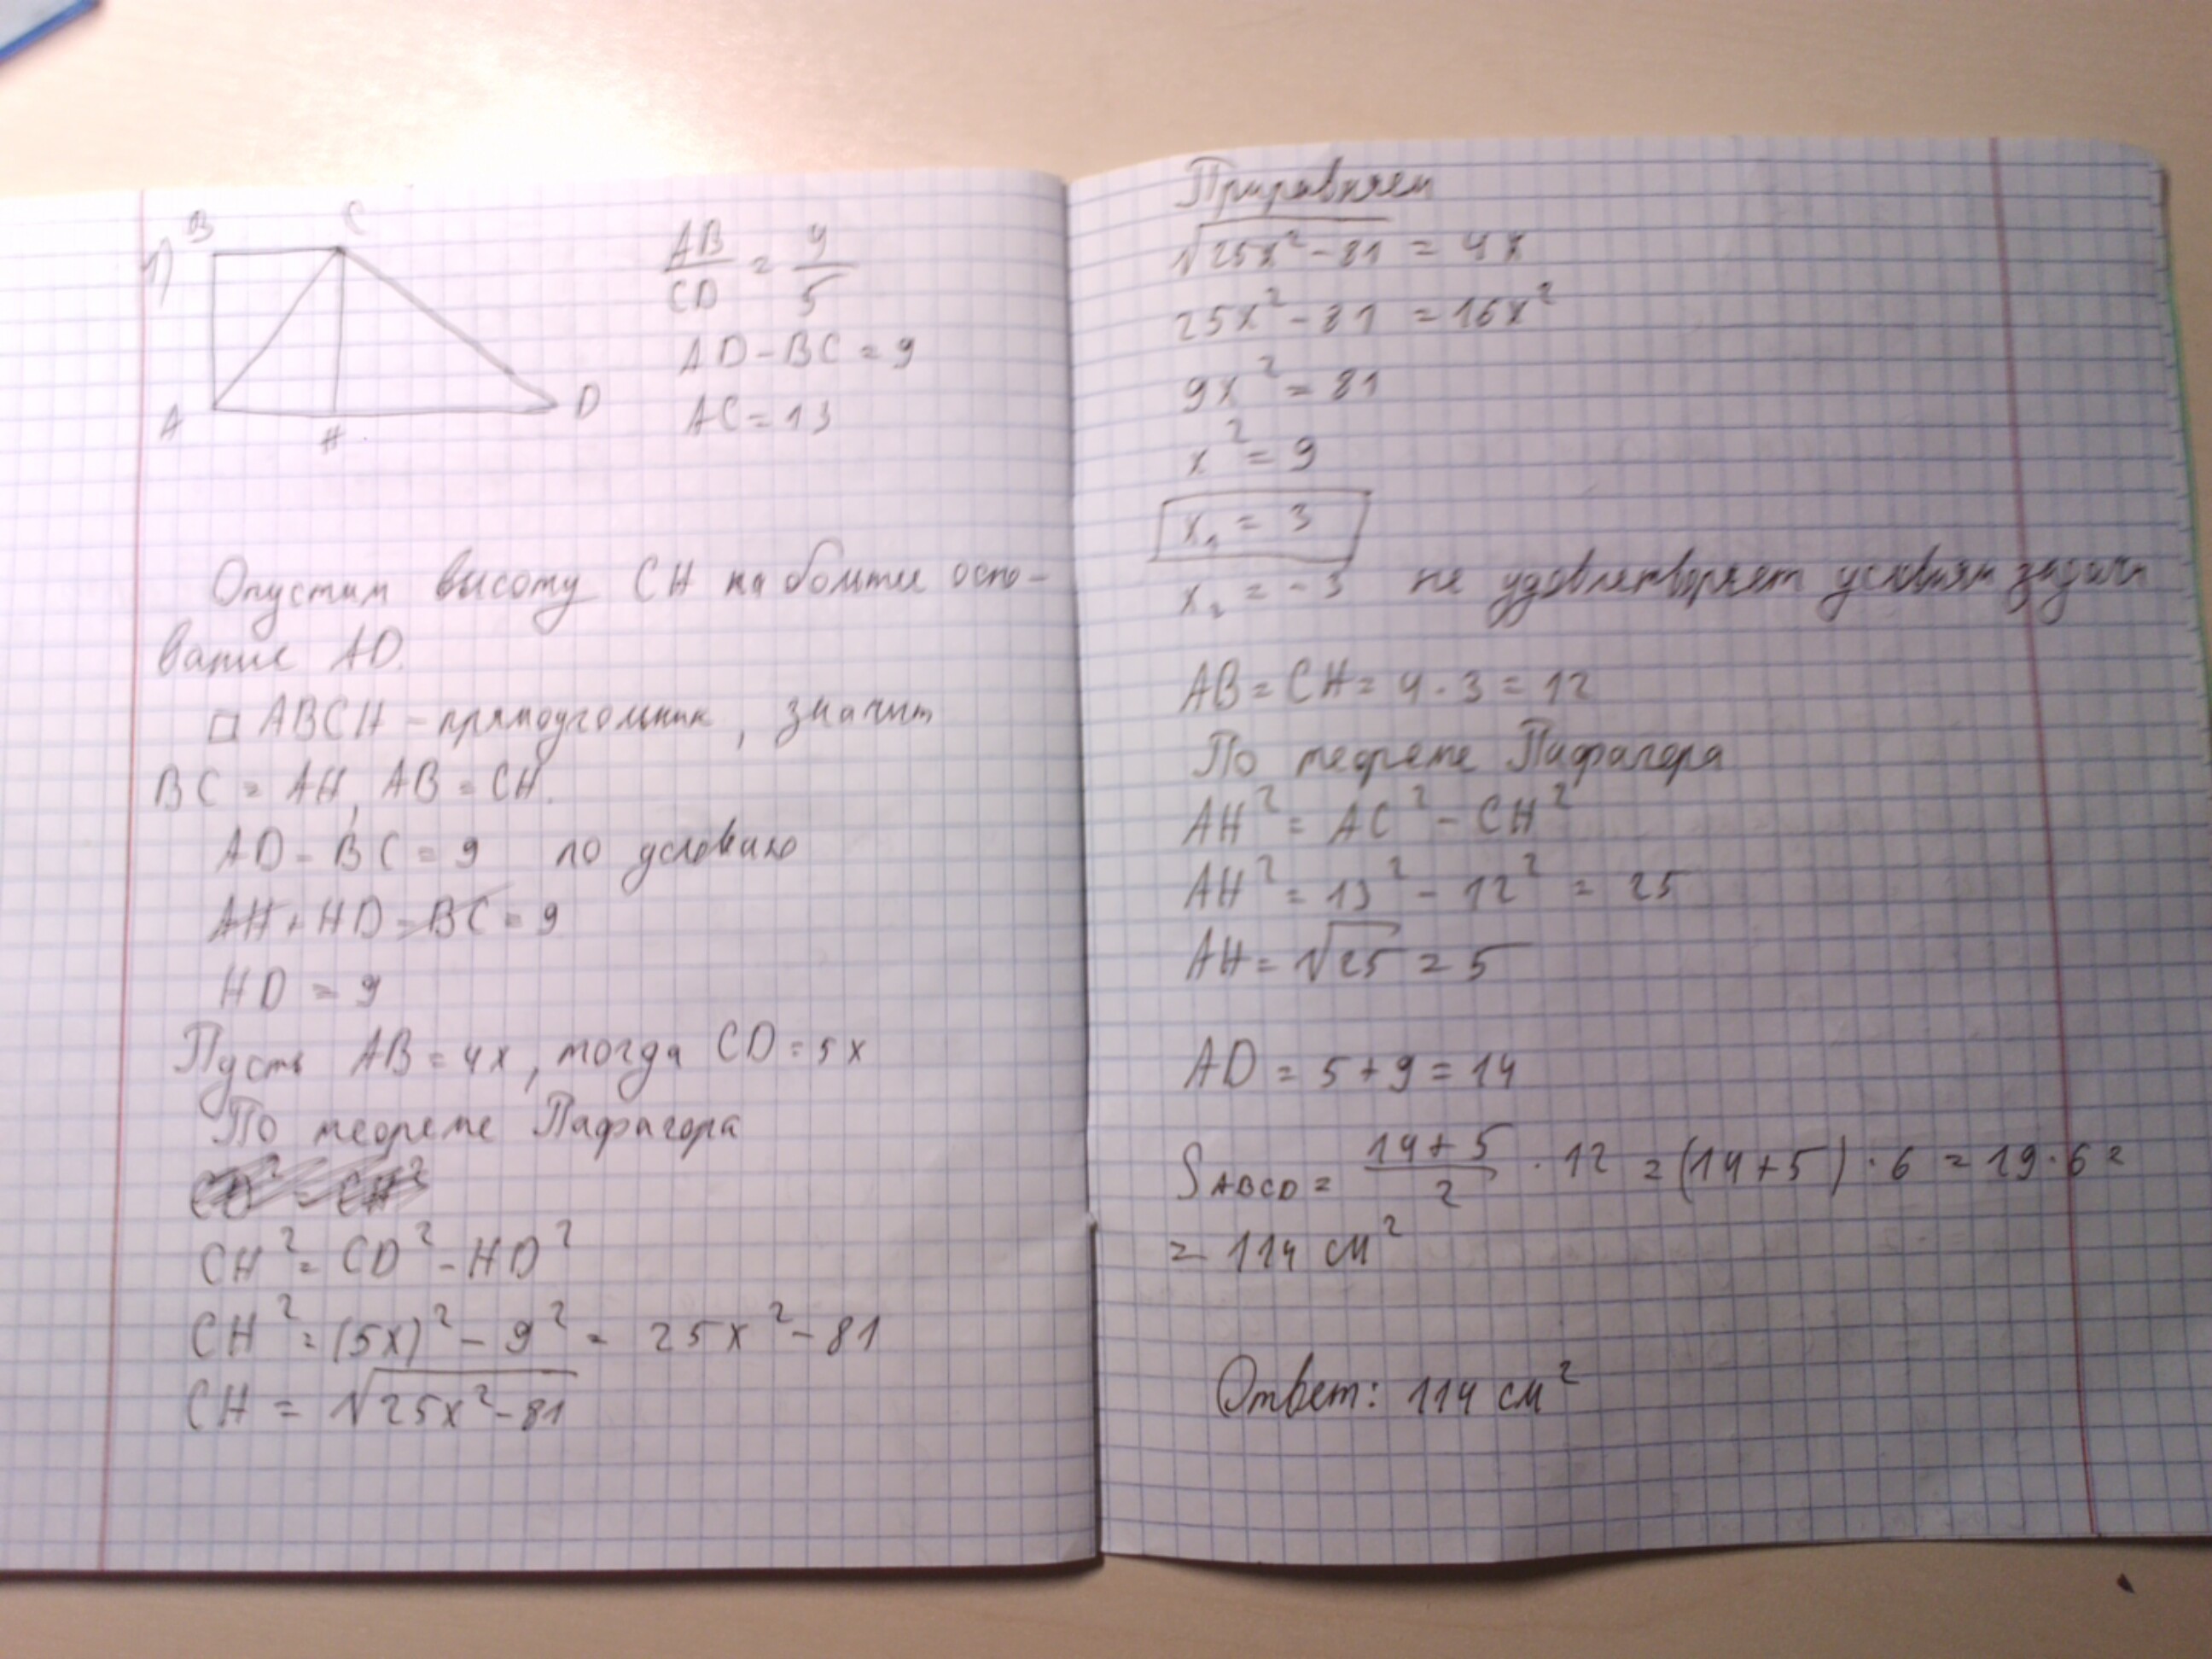 1)
B C
A H D
AB/CD = 4/5
AD - BC = 9
AC = 13
Опустим высоту CH на больше осно-
вание AD.
□ ABCH - прямоугольник, значит
BC = AH, AB = CH.
AD - BC = 9 по условию
AH + HD - BC = 9
HD = 9
Пусть AB = 4x, тогда CD = 5x
По теореме Пифагора
CD² = CH²
CH² = CD² - HD²
CH² = (5x)² - 9² = 25x² - 81
CH = √25x² - 81
Приравняем
√25x² - 81 = 4x
25x² - 81 = 16x²
9x² = 81
x² = 9
x₁ = 3
x₂ = -3 не удовлетворяет условиям задачи
AB = CH = 4 · 3 = 12
По теореме Пифагора
AH² = AC² - CH²
AH² = 13² - 12² = 25
AH = √25 = 5
AD = 5 + 9 = 14
S ABCD = 14 + 5/2 · 12 = (14 + 5) · 6 = 19 · 6 =
= 114 см²
Ответ: 114 см²